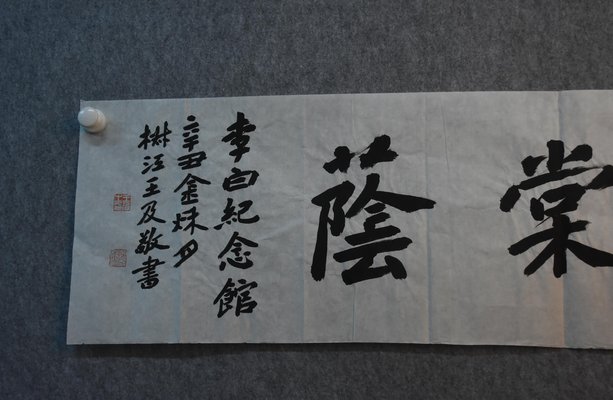 棠蔭
李白紀念館
辛丑金秋月
椒江王及敬書